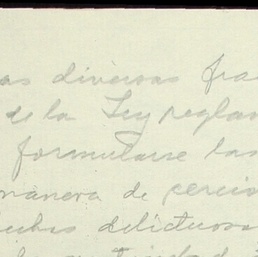 as diversas fra
de la Ley reglam
formularse las
manera de cercio
hechos delictuosos